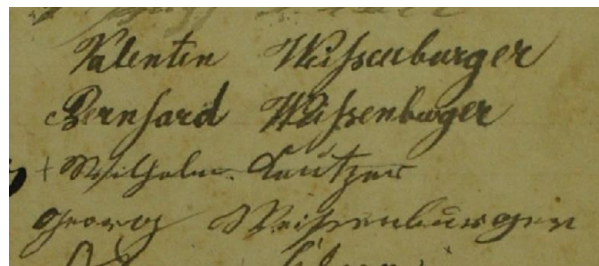 Valentin Weißenburger
Bernhard Weißenburger
+ Wilhelm Lautzer
Georg Weißenburger